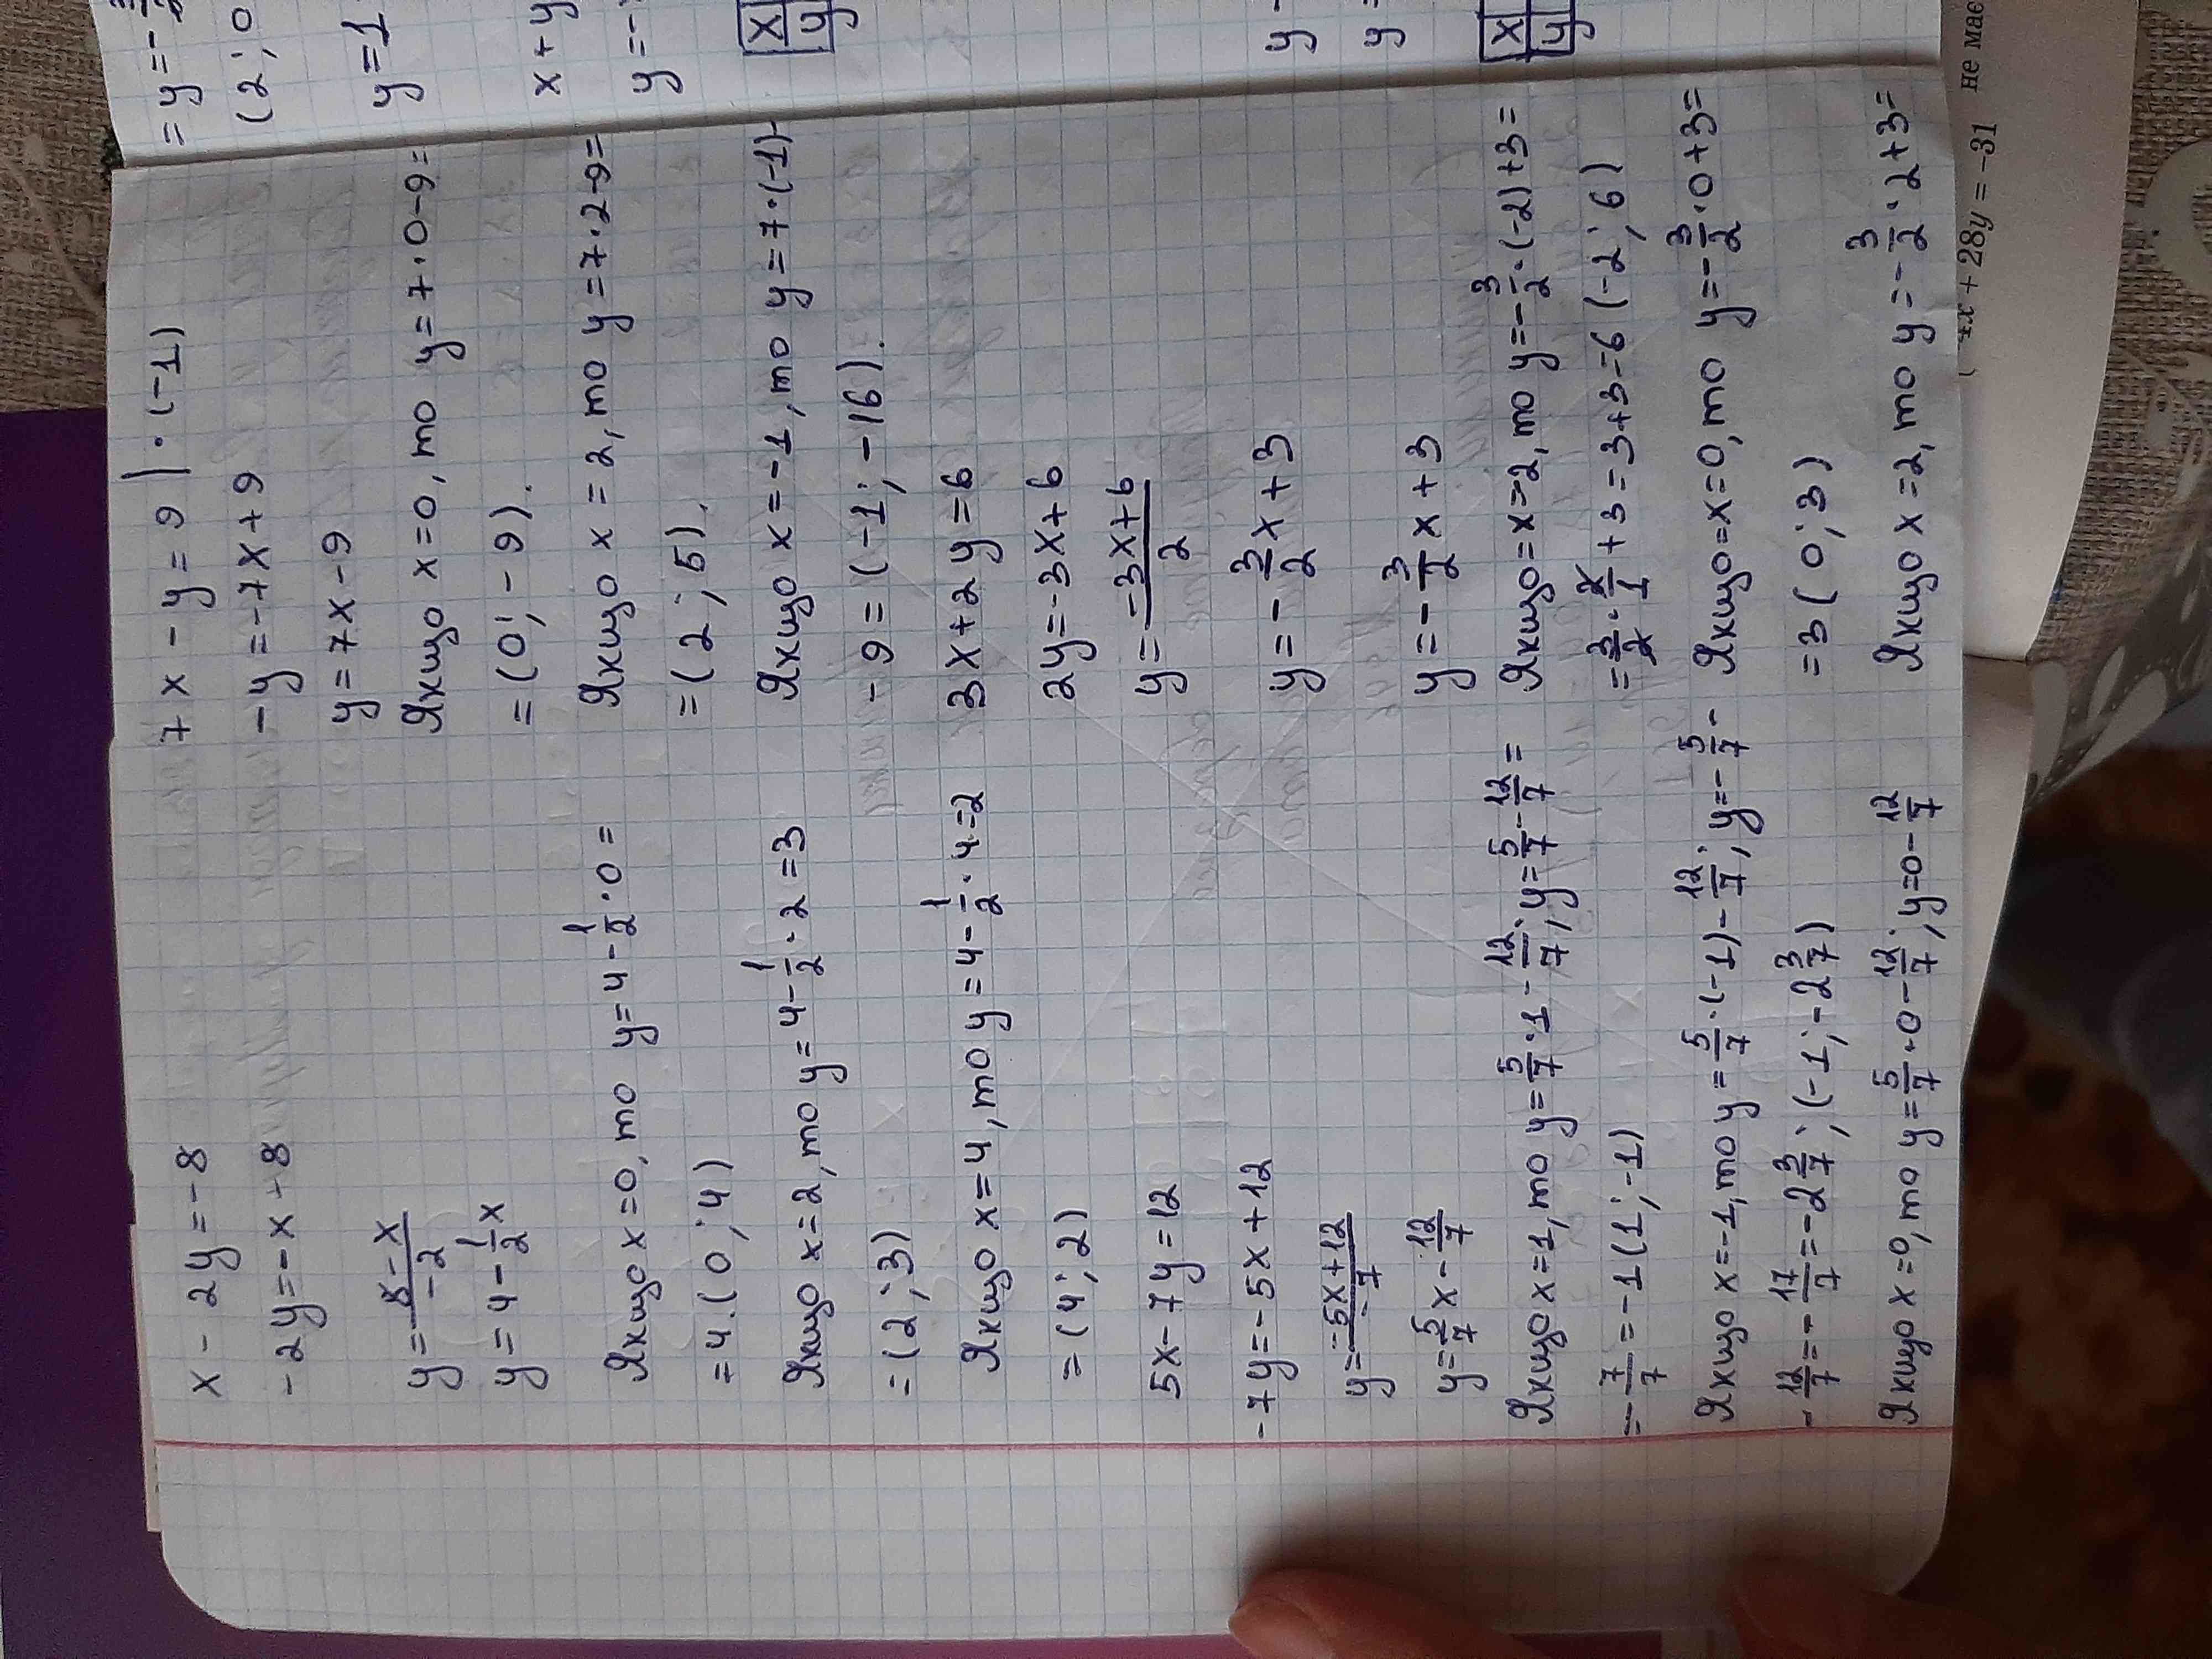 x - 2y = -8
-2y = -x - 8
y = \frac{8-x}{-2}
y = 4 - \frac{1}{2}x
Якщо x=0, то y=4-\frac{1}{2}·0=
=4.(0;4)
Якщо x=2, то y=4-\frac{1}{2}·2=3
=(2;3)
Якщо x=4, то y=4-\frac{1}{2}·4=2
=(4;2)
5x-7y=12
-7y=-5x+12
y=\frac{-5x+12}{-7}
y=\frac{5}{7}x-\frac{12}{7}
Якщо x=1, то y=\frac{5}{7}·1-\frac{12}{7}; y=\frac{5}{7}-\frac{12}{7}=
=-\frac{7}{7}=-1(1;-1)
Якщо x=-1, то y=\frac{5}{7}·(-1)-\frac{12}{7}; y=-\frac{5}{7}-
-\frac{12}{7}=-\frac{17}{7}=-2\frac{3}{7}; (-1;-2\frac{3}{7})
Якщо x=0, то y=\frac{5}{7}·0-\frac{12}{7}; y=0-\frac{12}{7}
7x-y=9|·(-1)
-y=-7x+9
y=7x-9
Якщо x=0, то y=7·0-9=
=(0;-9).
Якщо x=2, то y=7·2-9=
=(2;5).
Якщо x=-1, то y=7·(-1)-
-9=(-1;-16).
3x+2y=6
2y=-3x+6
y=\frac{-3x+6}{2}
y=-\frac{3}{2}x+3
y=-\frac{3}{2}x+3
Якщо=x=-2, то y=-\frac{3}{2}·(-2)+3=
=\frac{3}{2}·\frac{2}{1}+3=3+3=6(-2;6)
Якщо=x=0, то y=-\frac{3}{2}·0+3=
=3(0;3)
Якщо x=2, то y=-\frac{3}{2}·2+3=
(2;0
y=1
x+y
y=-
x
y
y-
y=
x
y
4x + 28y = -31
не має